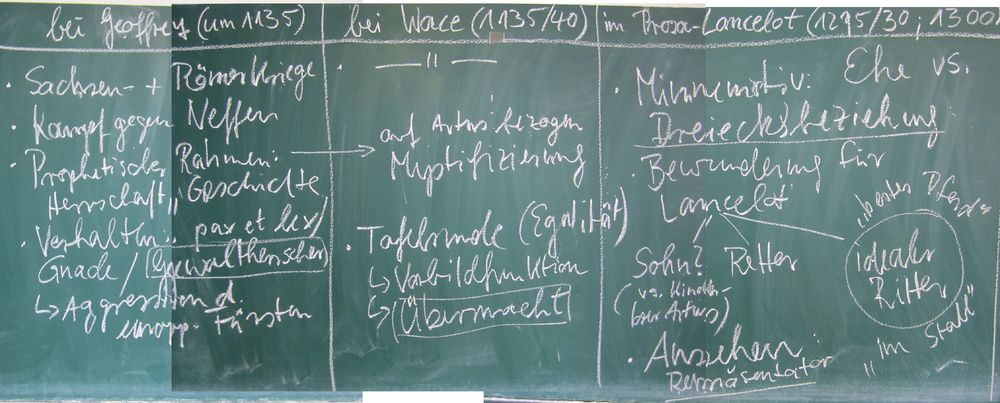 bei Geoffrey (um 1135)
· Sachsen- + Römerkriege
· Kampf gegen Neffen
· Prophetischer Rahmen:
Herrschaft „Geschichte
· Verhalten: pax et lex/
Gnade / Gewaltherrscher
↳ Aggression d.
europ. Fürsten
bei Wace (1135/40)
· — " —
→ auf Artus bezogen
Mystifizierung
· Tafelrunde (Egalität)
↳ Vorbildfunktion
↳ Übermacht
im Prosa-Lancelot (1215/30; 1300
· Minnemotiv: Ehe vs.
Dreiecksbeziehung
· Bewunderung für
Lancelot
Sohn? Retter
(vs. Kinder-
loser Artus)
„bestes Pferd
idealer
Ritter
im Stall"
· Ansehen:
Repräsentator